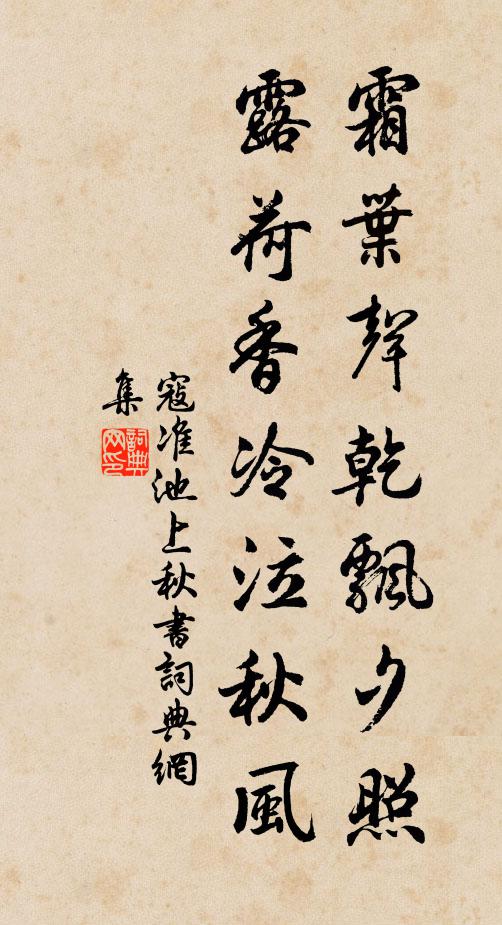 霜葉聲乾飄夕照
露荷香冷泣秋風
寇准池上秋書詞典網
集
詞典
网印